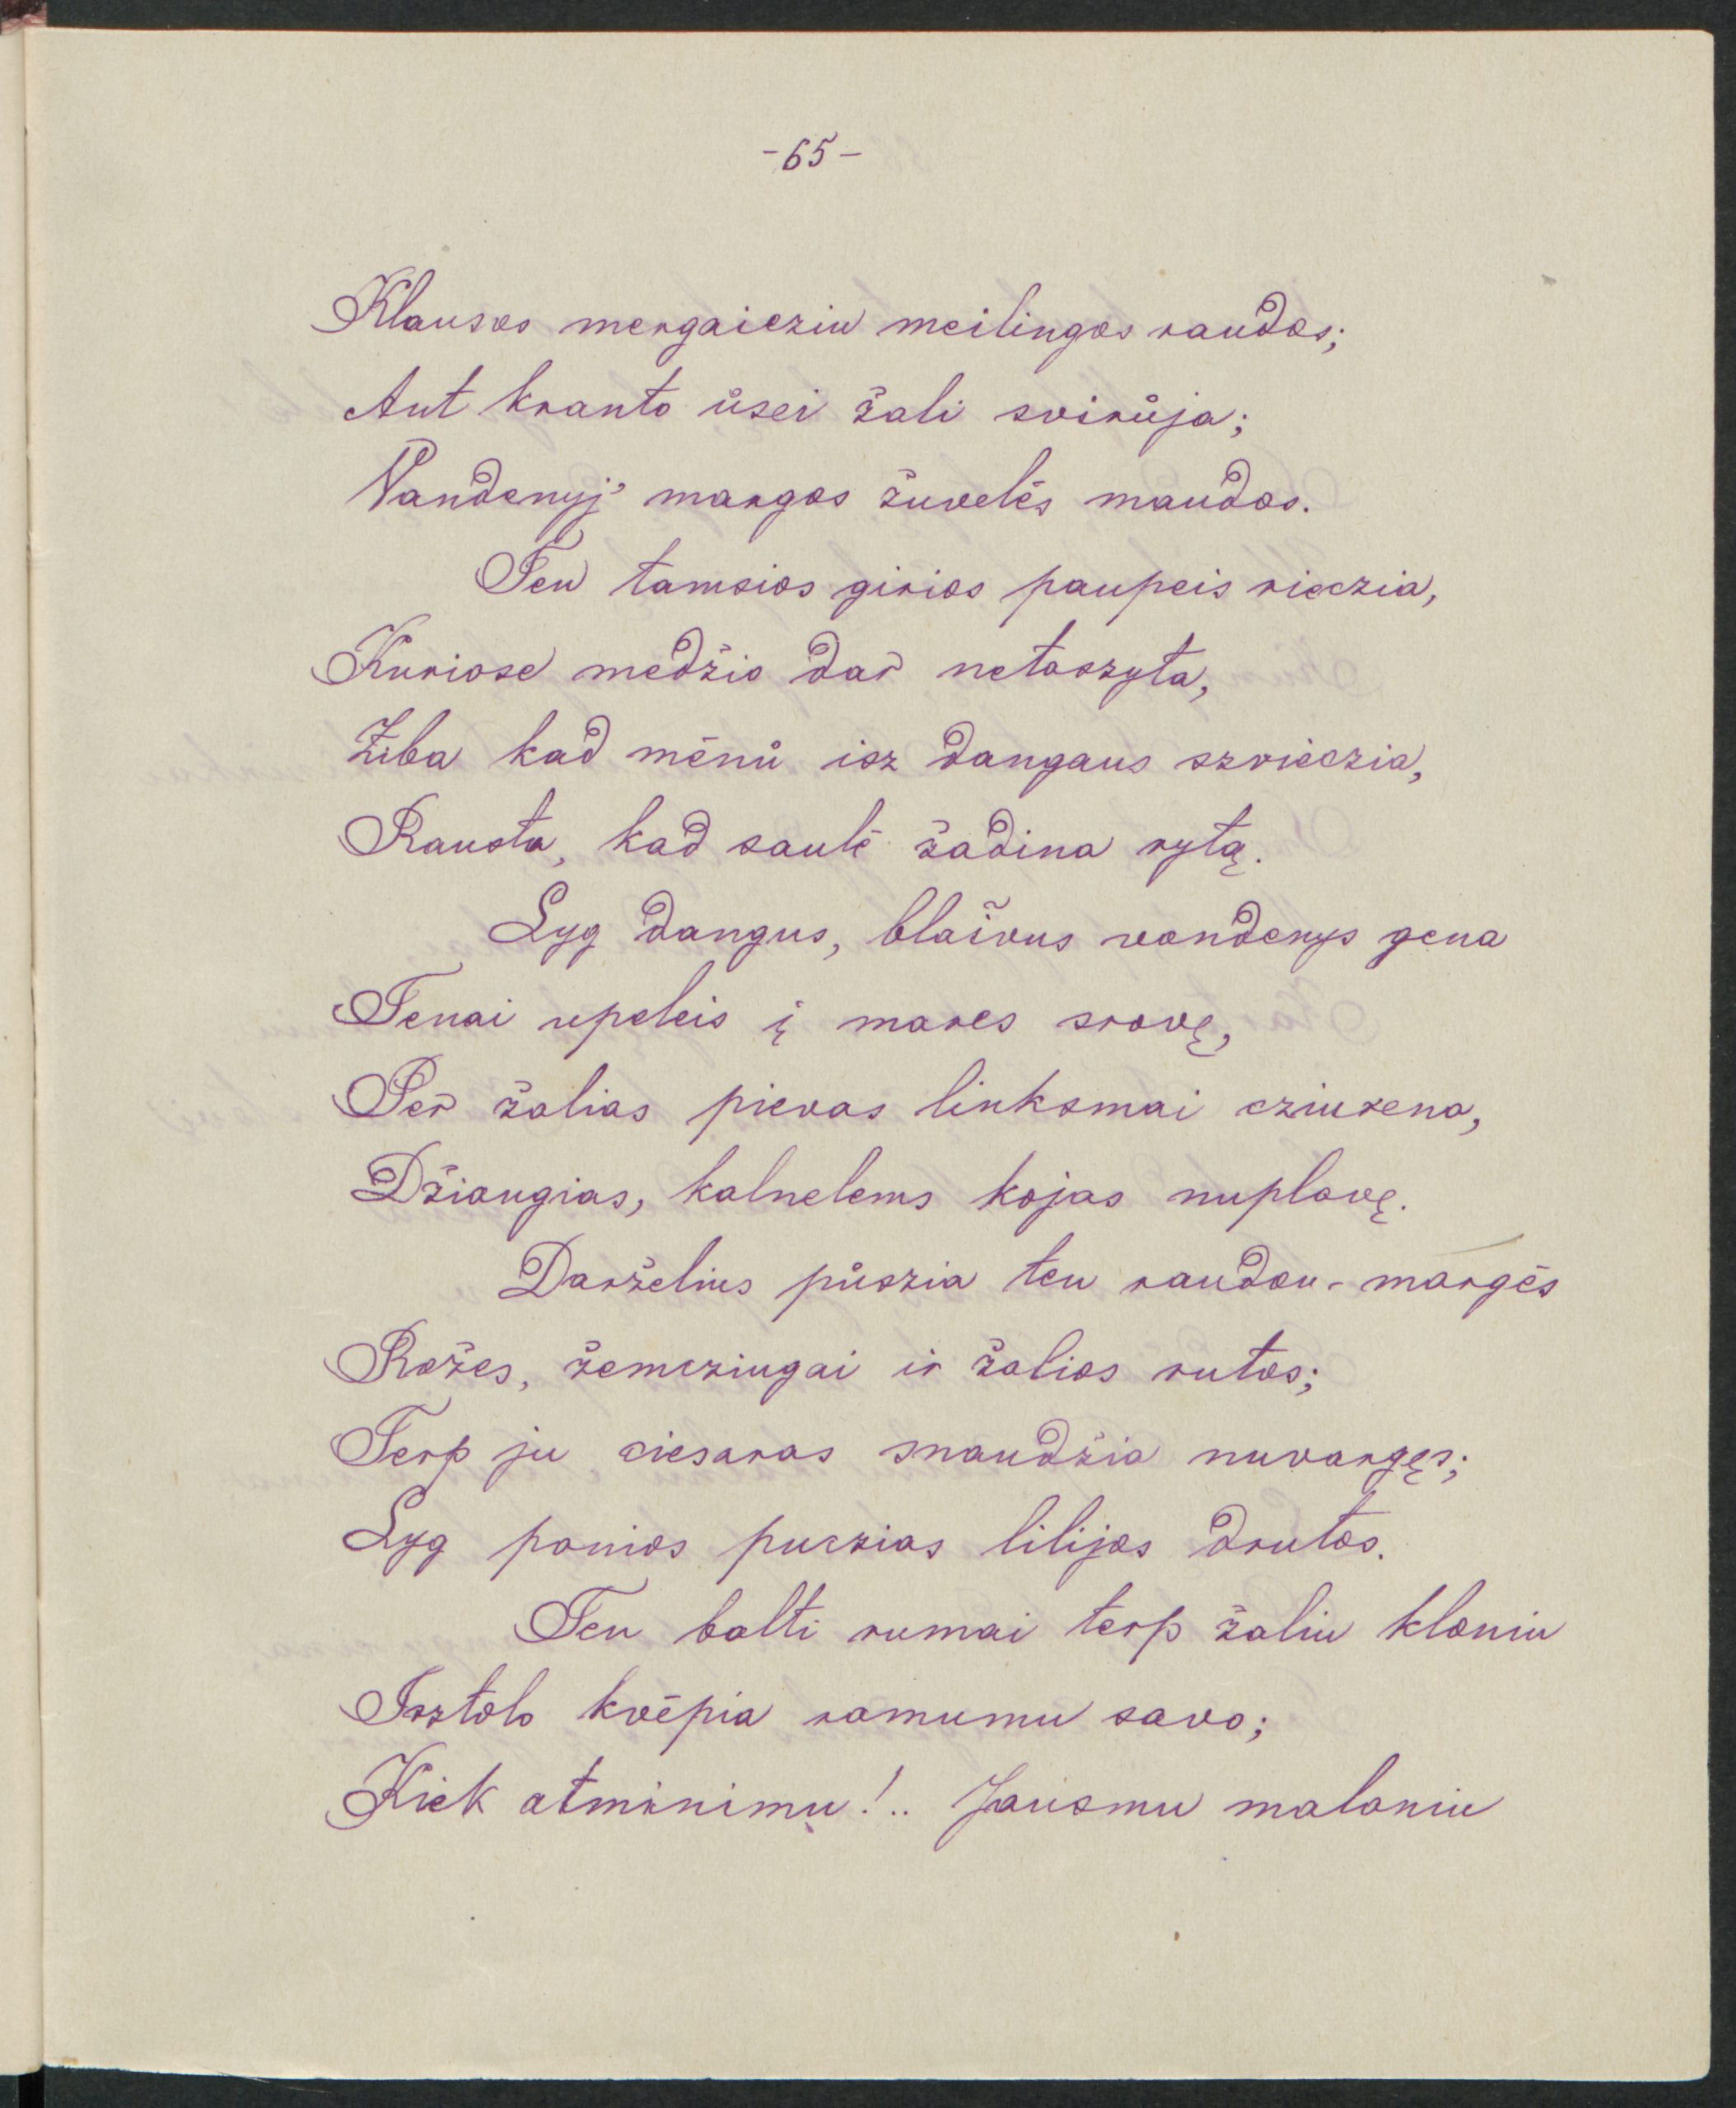 -65-
Klausos mergaicziu meilingos raudos;
Ant kranto ůsei žali svirůja;
Vandenyj' margos žuvelės maudos.
Ten tamsios girios paupeis rieczia,
Kuriose medžio dar netaszyta,
Žiba kad mėnů isz dangaus szvieczia,
Rausta, kad saulė žadina rytą.
Lyg dangus, blaivus vandenys gena
Tenai upeleis į mares srovę,
Per žalias pievas linksmai cziurena,
Džiaugias, kalnelems kojas nuplovę.
Darželius půszia ten raudon-margės
Rožes, žemcziugai ir žalios rutos;
Terp ju ciesoras snaudžia nuvargęs;
Lyg ponios puczias lilijos drutos.
Ten balti rumai terp žaliu kloniu
Isztolo kvėpia ramumu savo;
Kiek atminimu!.. Jausmu maloniu